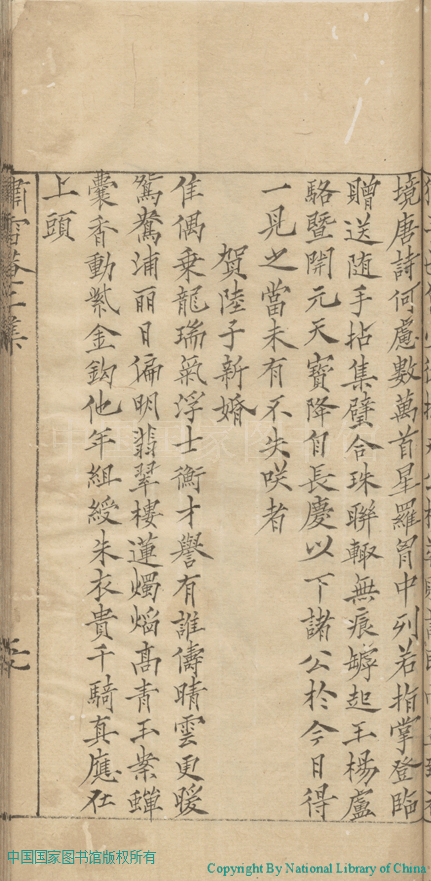 境唐詩何慮數萬首星羅胷中列若指掌登臨
贈送随手拈集璧合珠聯輙無痕罅起王楊盧
駱暨開元天寶降自長慶以下諸公於今日得
一見之當未有不失咲者
賀陸子新婚
隹偶乗龍瑞氣浮士衡才譽有誰儔晴雲更暖
鴛鴦浦丽日偏明翡翠樓蓮燭焰髙青玉案蟬
囊香動紫金鈎他年組綬朱衣貴千騎真應在
上頭
嘯雪菴三集
中国国家图书馆版权所有
Copyright By National Library of China